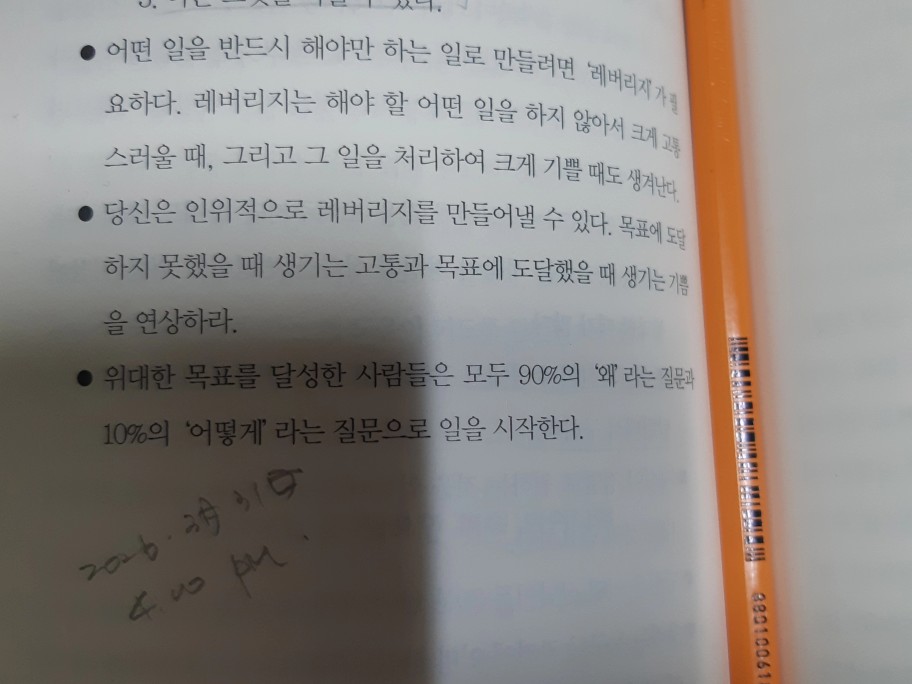 ● 어떤 일을 반드시 해야만 하는 일로 만들려면 '레버리지'가 필
요하다. 레버리지는 해야 할 어떤 일을 하지 않아서 크게 고통
스러울 때, 그리고 그 일을 처리하여 크게 기쁠 때도 생겨난다.
● 당신은 인위적으로 레버리지를 만들어낼 수 있다. 목표에 도달
하지 못했을 때 생기는 고통과 목표에 도달했을 때 생기는 기쁨
을 연상하라.
● 위대한 목표를 달성한 사람들은 모두 90%의 '왜'라는 질문과
10%의 '어떻게'라는 질문으로 일을 시작한다.
2026. 3月 31日
4.00 PM.
88010061